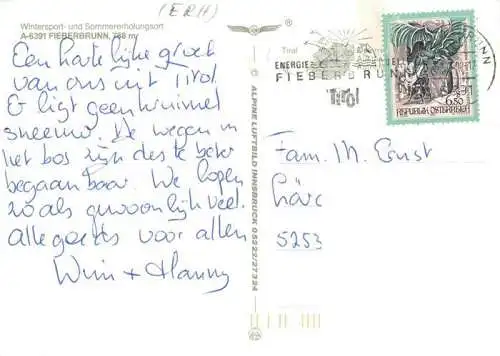 (ERH)
Wintersport- und Sommererholungsort
A-6391 FIEBERBRUNN, 788 m
Een hartelijke groet
van ons uit Tirol
Er ligt geen kruimel
sneeuw. De wegen in
het bos zijn des te beter
begaanbaar. We hopen
zoals gewoonlijk veel
alle goeds voor allen
Wim + Hanny
ALPINE LUFTBILD INNSBRUCK 05222/27324
Tirol
ENERGIE
FIEBERBRUNN
Tirol
6.50
REPUBLIK ÖSTERREICH
Fam. M. Ernst
Lärc
5253